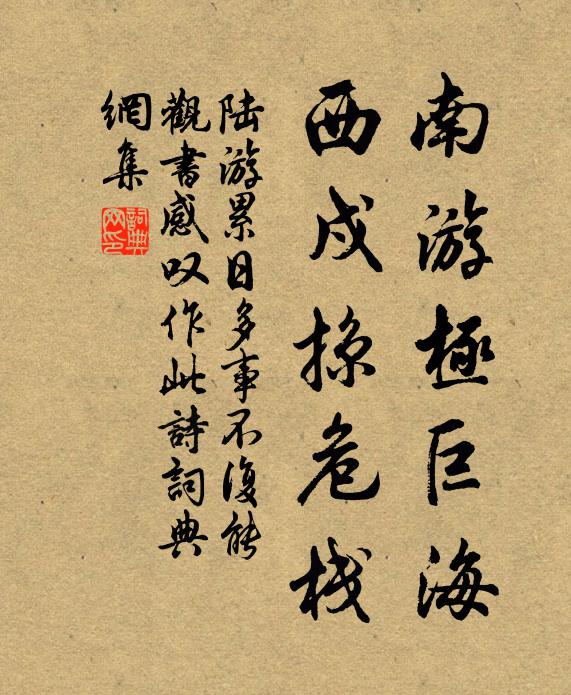 南游極巨海
西戍掠危栈
陆游累日多事不復能
觀書感叹作此詩詞典
網集
詞典
网印